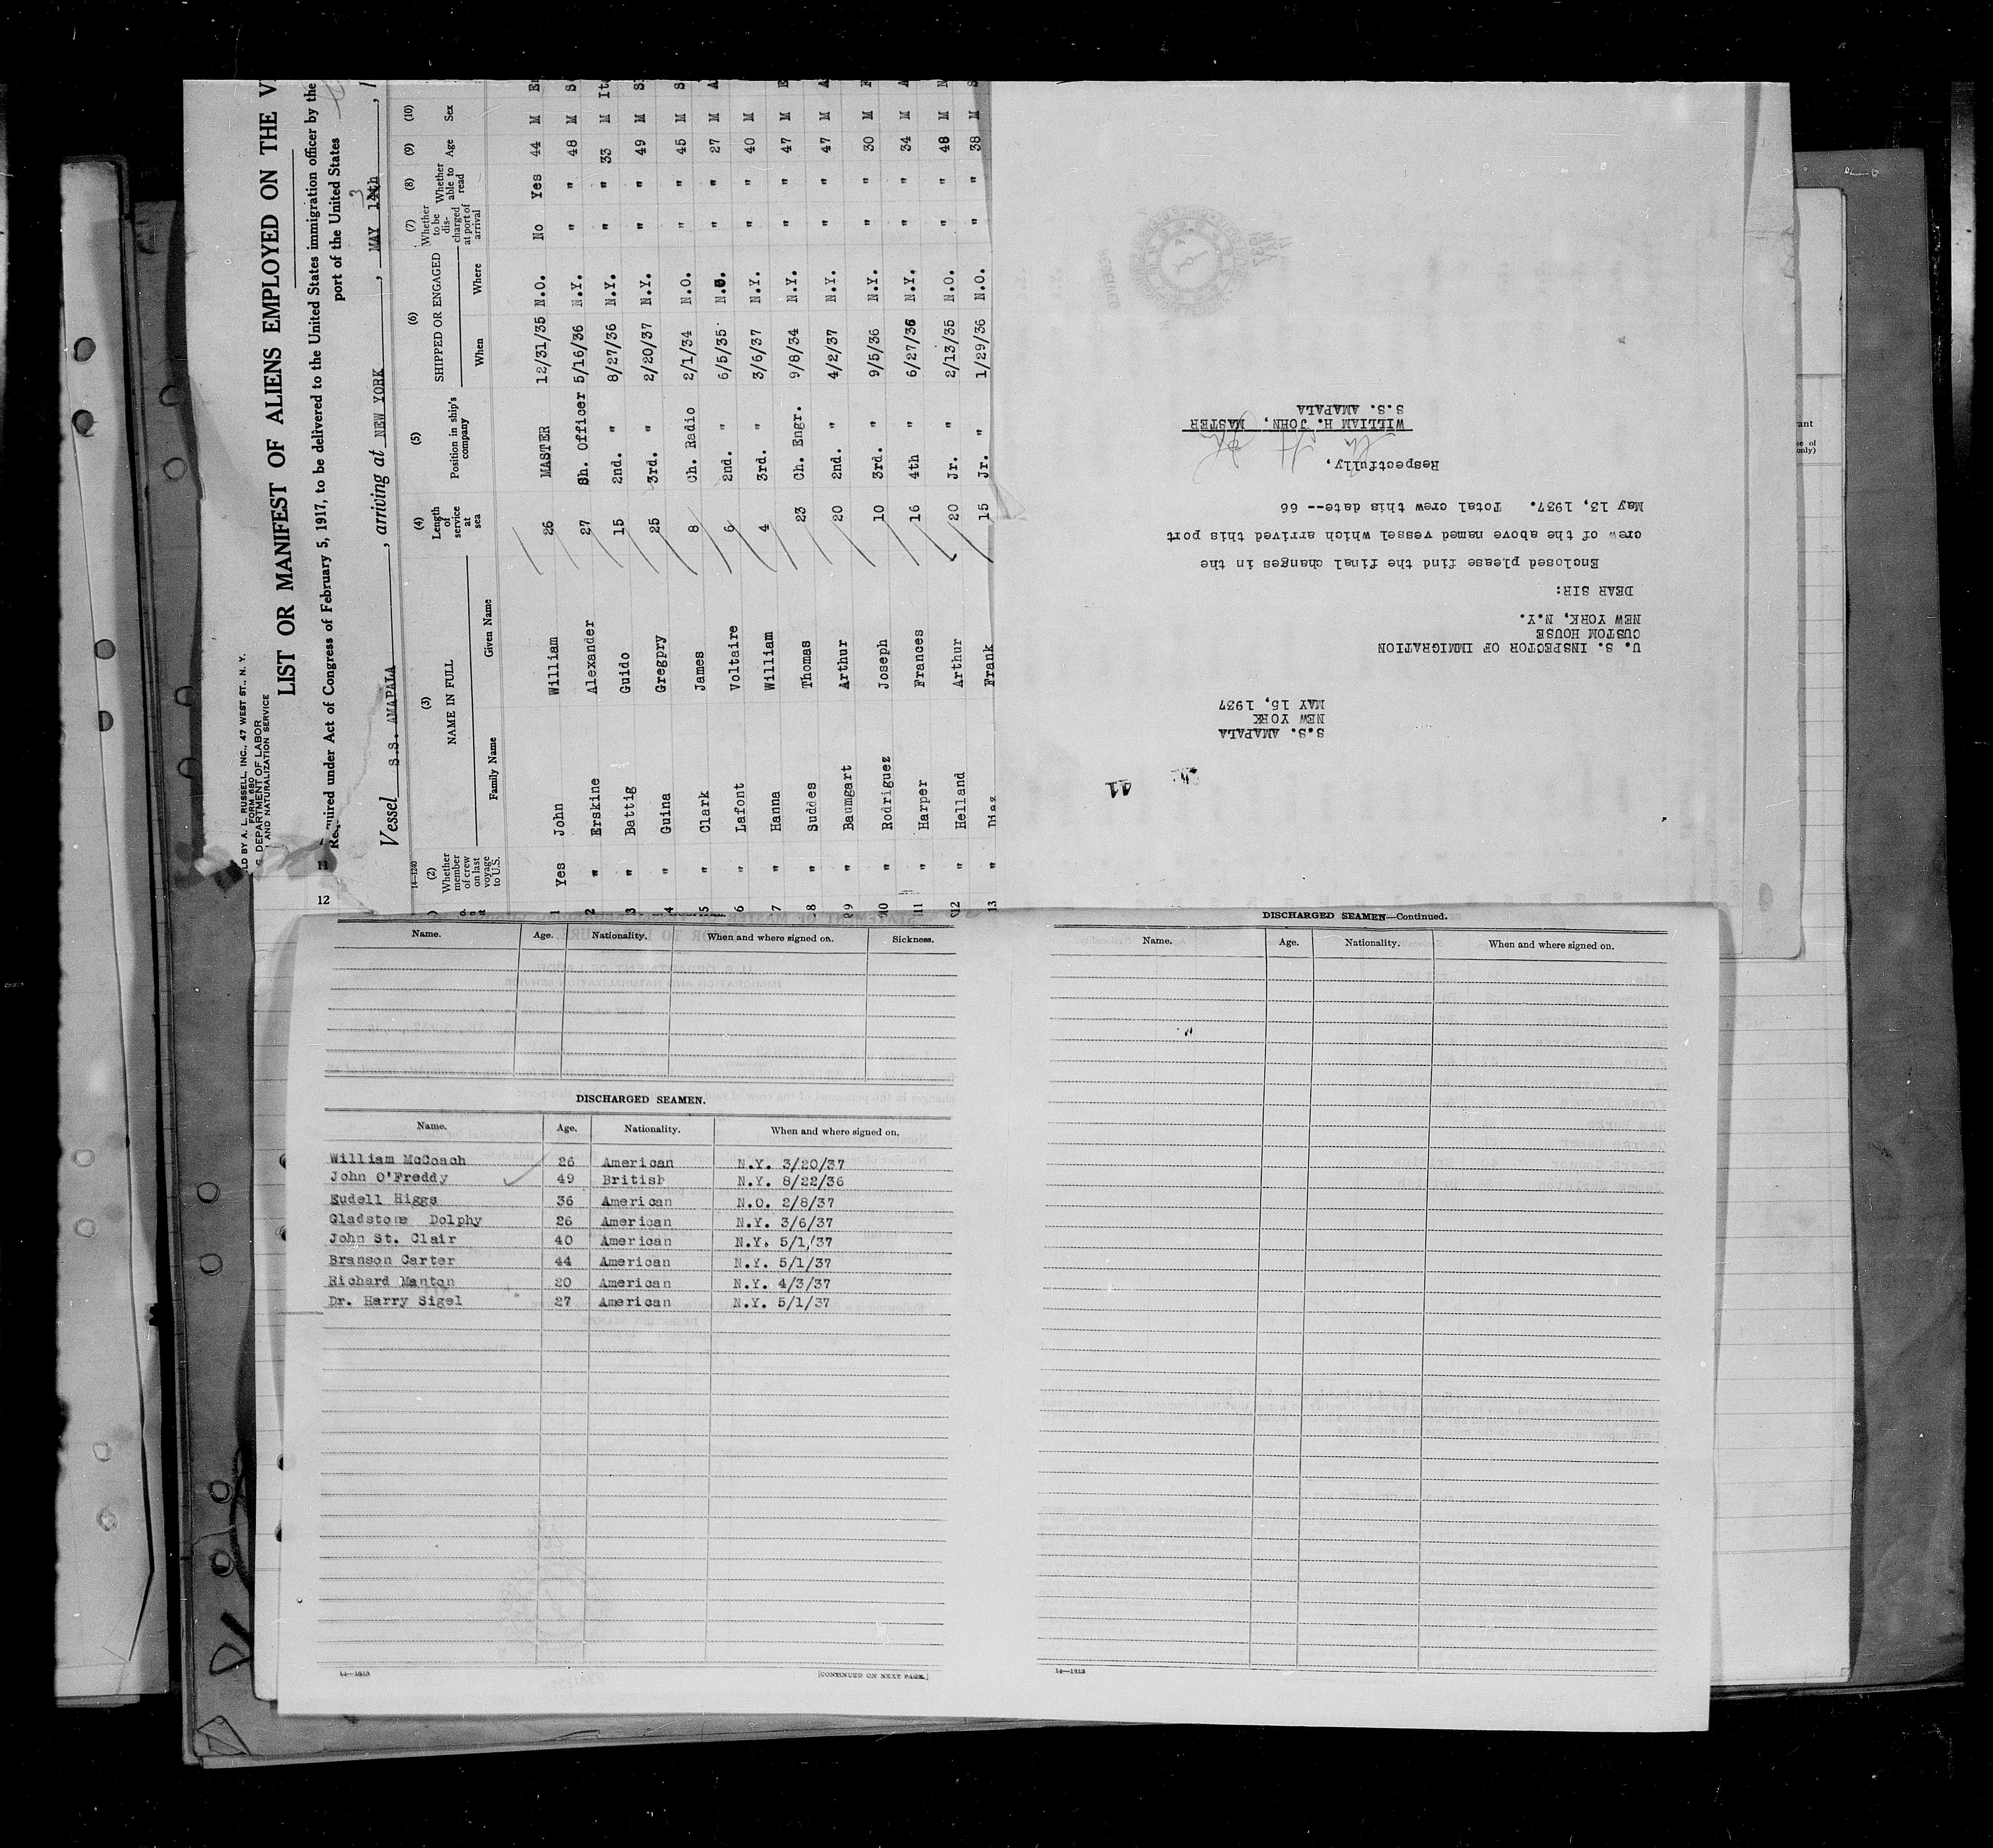 LD BY A. L. RUSSELL, INC., 47 WEST ST., N. Y.
FORM 680
DEPARTMENT OF LABOR
AND NATURALIZATION SERVICE
LIST OR MANIFEST OF ALIENS EMPLOYED ON THE V
Required under Act of Congress of February 5, 1917, to be delivered to the United States immigration officer by the
port of the United States
Vessel S.S. AMAPALA, arriving at NEW YORK, MAY 14th 3, 1
14-1240
(2) (3) (4) (5) (6) (7) (8) (9) (10)
Whether member of crew on last voyage to U.S. NAME IN FULL Family Name Given Name Length of service at sea Position in ship's company SHIPPED OR ENGAGED When Where Whether to be discharged at port of arrival Whether able to read Age Sex
1 Yes John William 26 MASTER 12/31/35 N.O. No Yes 44 M
2 " Erskine Alexander 27 Sh. Officer 5/16/36 N.Y. " " 48 M S
3 " Battig Guido 15 2nd. " 8/27/36 N.Y. " " 33 M It
4 " Guina Gregpry 25 3rd. " 2/20/37 N.Y. " " 49 M S
5 " Clark James 8 Ch. Radio 2/1/34 N.O. " " 45 M S
6 " Lafont Voltaire 6 2nd. " 6/5/35 " " 27 M A
7 " Hanna William 4 3rd. " 3/6/37 N.Y. " " 40 M
8 " Suddes Thomas 23 Ch. Engr. 9/8/34 N.Y. " " 47 M
9 " Baumgart Arthur 20 2nd. " 4/2/37 N.Y. " " 47 M A
10 " Rodriguez Joseph 10 3rd. " 9/5/36 N.Y. " " 30 M
11 " Harper Frances 16 4th " 6/27/36 N.Y. " " 34 M A
12 " Helland Arthur 20 Jr. " 2/13/35 N.O. " " 48 M N
13 " Diaz Frank 15 Jr. " 1/29/36 N.O. " " 38 M S
11
12
11
S.S. AMAPALA
NEW YORK
MAY 15, 1937
U. S. INSPECTOR OF IMMIGRATION
CUSTOM HOUSE
NEW YORK, N.Y.
DEAR SIR:
Enclosed please find the final changes in the
crew of the above named vessel which arrived this port
May 13, 1937. Total crew this date-- 66
Respectfully,
WILLIAM H. JOHN, MASTER
S.S. AMAPALA
RECEIVED
Name. Age. Nationality. When and where signed on. Sickness.
DISCHARGED SEAMEN.
Name. Age. Nationality. When and where signed on.
William McCoach 26 American N.Y. 3/20/37
John O'Freddy 49 British N.Y. 8/22/36
Eudell Higgs 36 American N.O. 2/8/37
Gladstone Dolphy 26 American N.Y. 3/6/37
John St. Clair 40 American N.Y. 5/1/37
Branson Carter 44 American N.Y. 5/1/37
Richard Manton 20 American N.Y. 4/3/37
Dr. Harry Sigel 27 American N.Y. 5/1/37
14-1613
[CONTINUED ON NEXT PAGE.]
DISCHARGED SEAMEN—Continued.
Name. Age. Nationality. When and where signed on.
14-1613